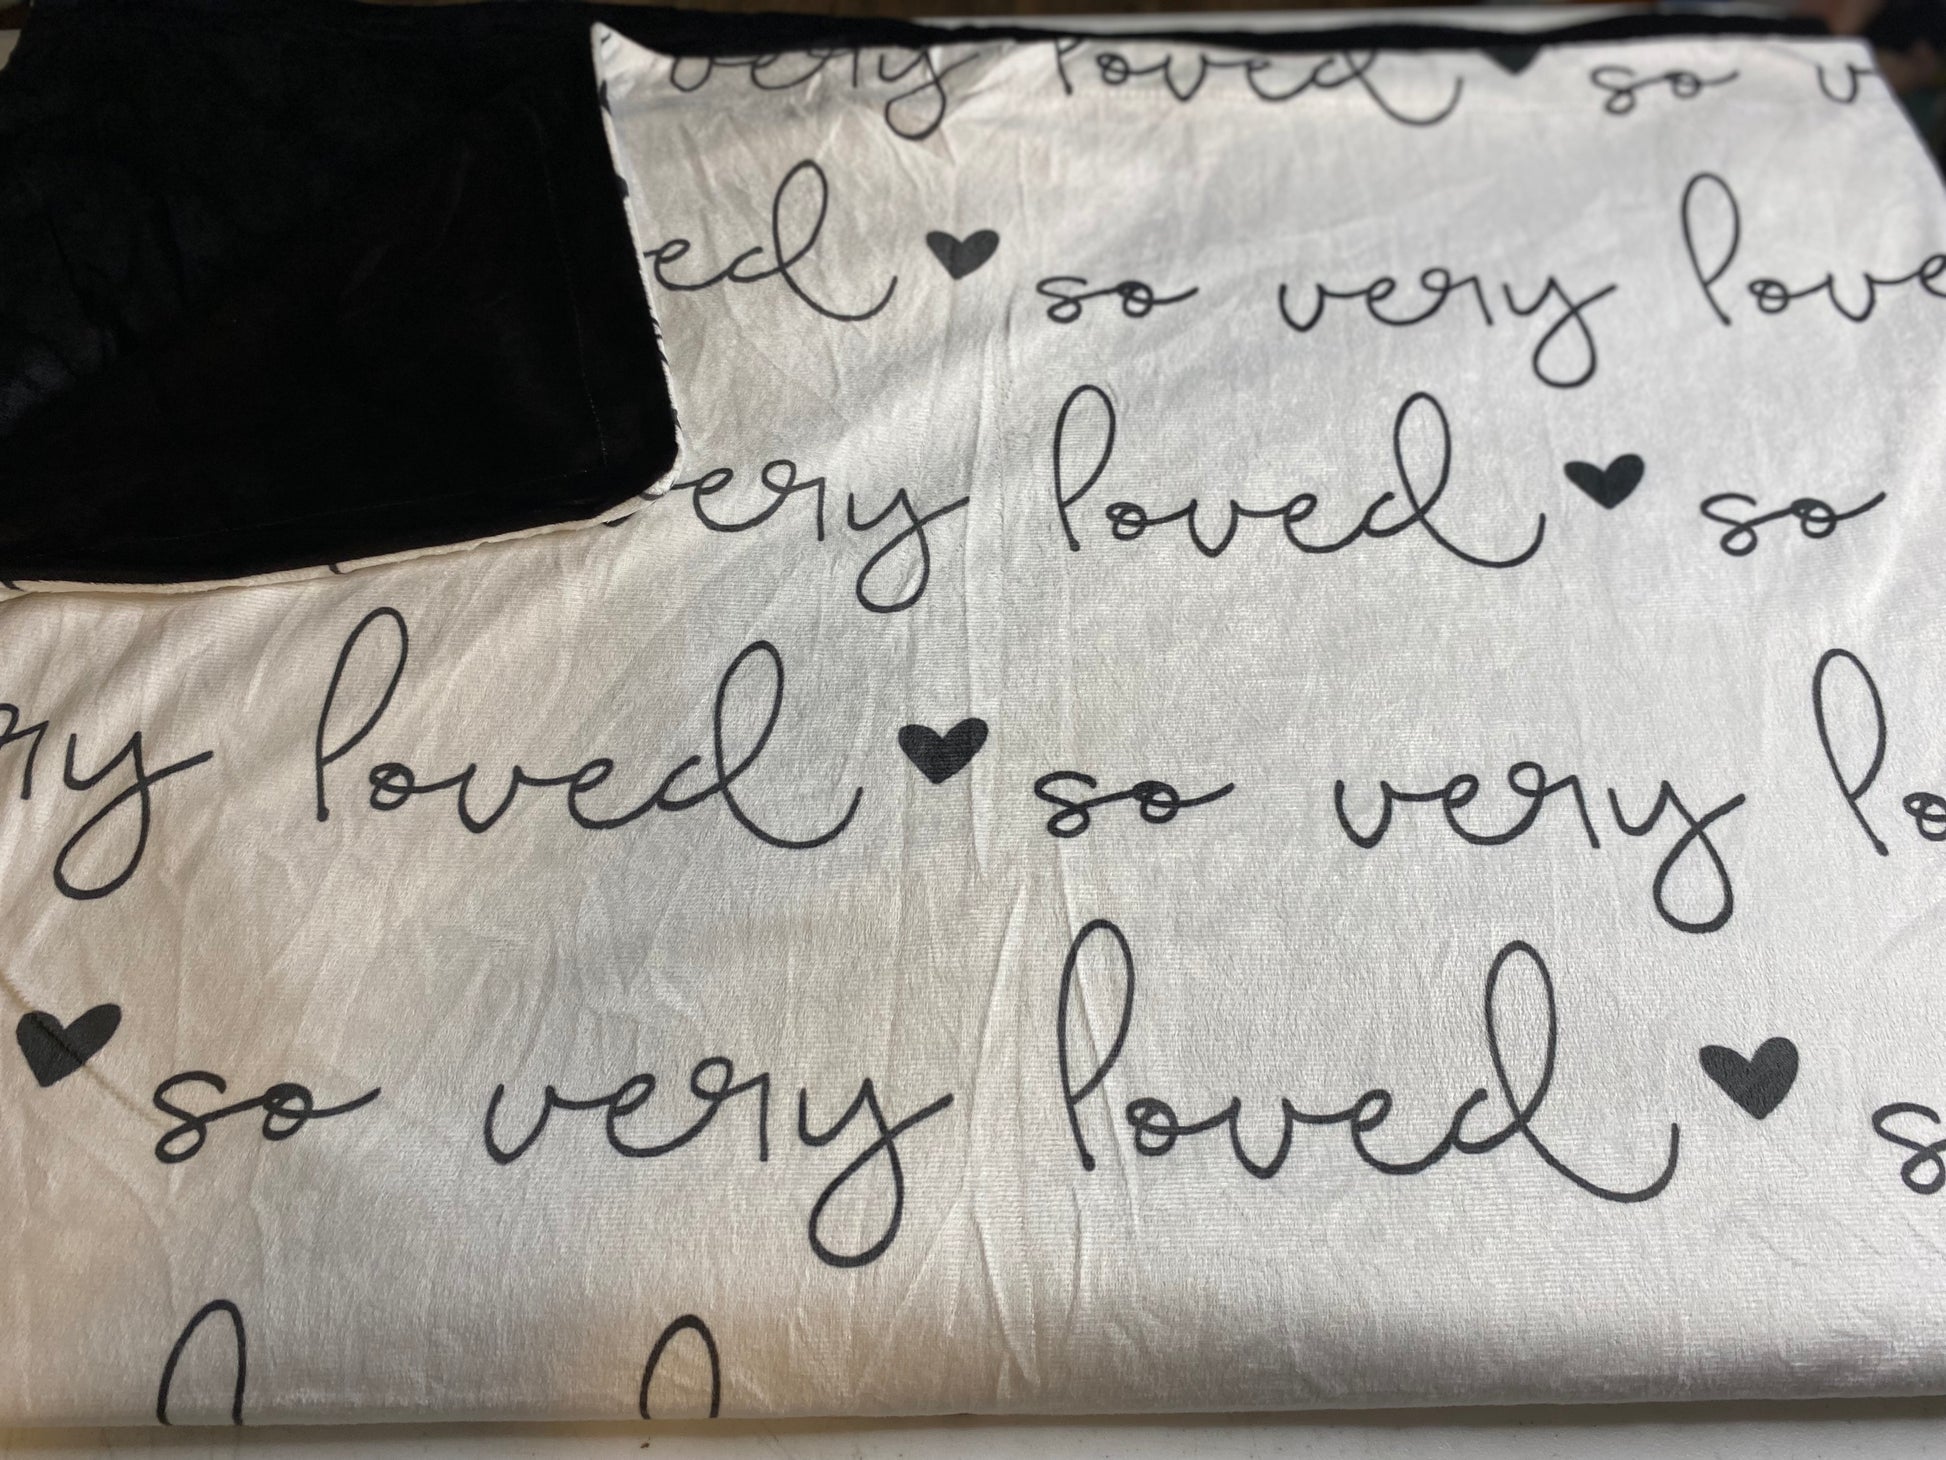 very loved so v
ed so very love
very loved so
ry loved so very lo
so very loved s